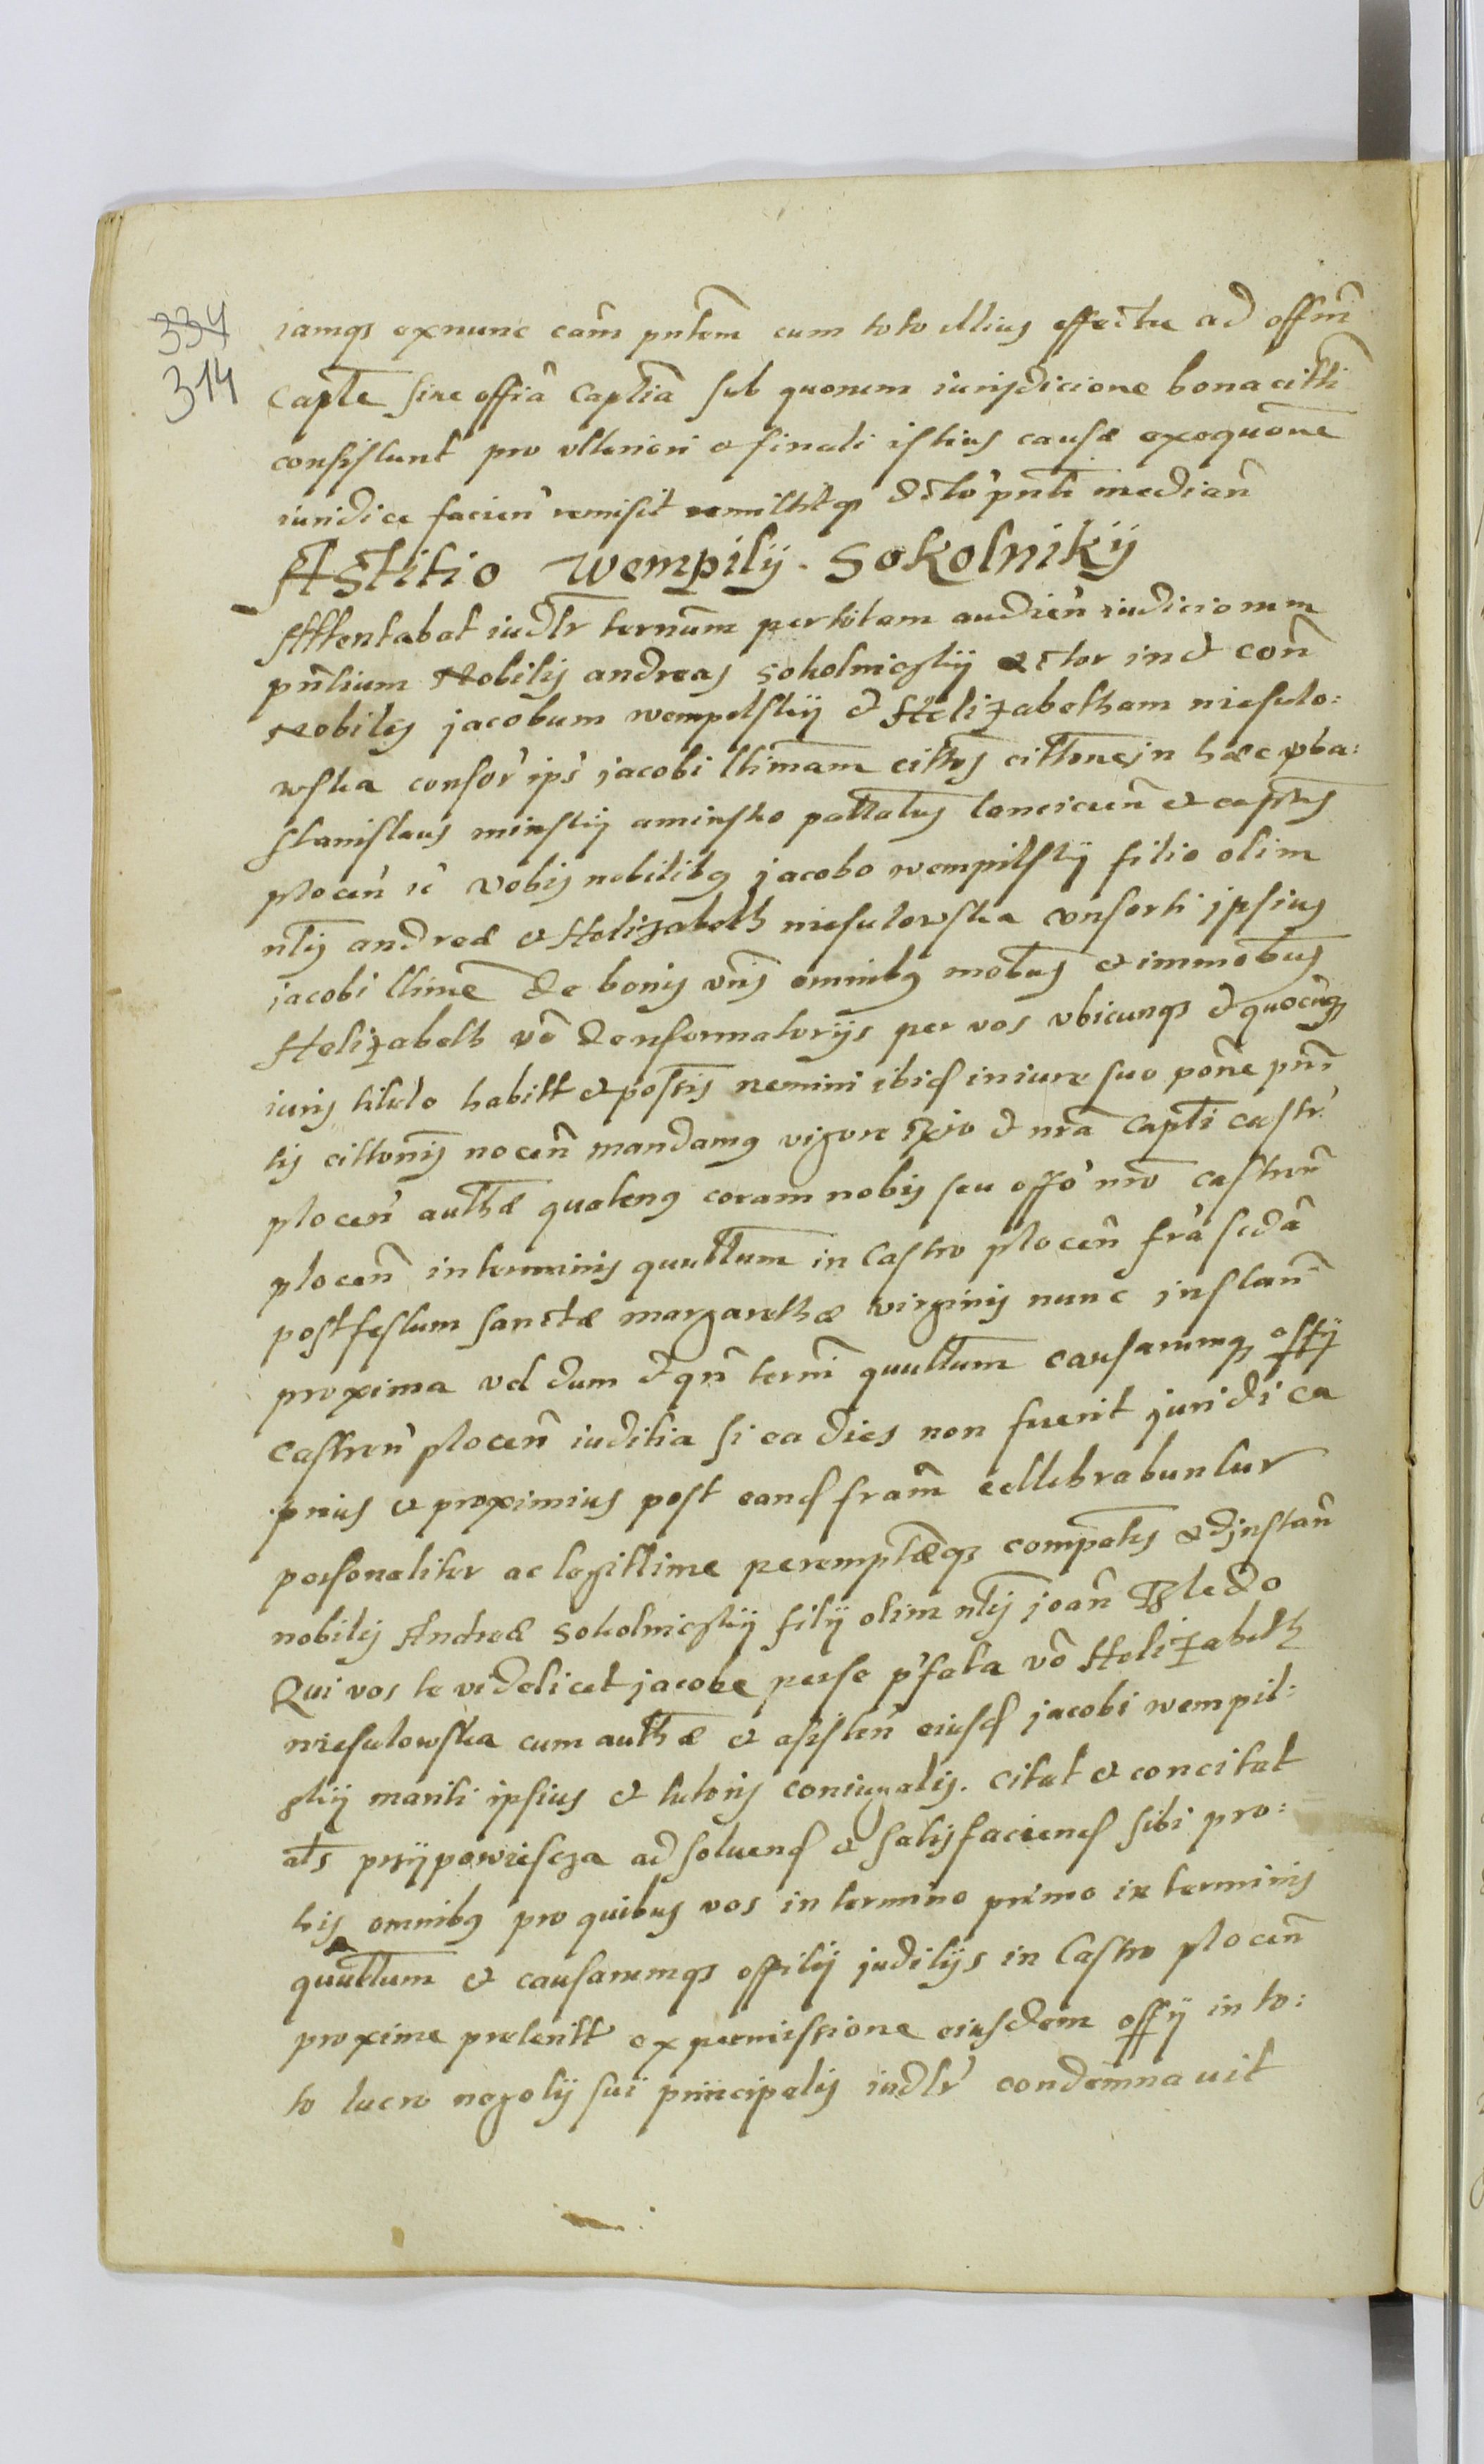 334
314
iamqȝ exnunc cam̄ pntem̄ cum toto illius effectu ad offm̄
Capłe siue offiā Captiā sub quorum iurisdicione bona citti
consistunt pro vlteriori et finali istius causæ exequōne
iuridice facien̄ remisit remittitqȝ dcto pn̄ti median̄
Astitio Wempilij. Sokolnikij
Attentabat iudlr termūm per totam audien̄ iudiciorum
pn̄tium Nobilis andreas sokolniczkij actor in et con̄
Nobiles jacobum wempelskij et Helizabetham niesulo:
wska consor̄ ips̄ jacobi ltimam̄ cittos cittone in hæc vba:
Stanislaus minskij aminsko pallatus lancicien̄ et captus
plocen̄ ic̄ Vobis nobilibȝ jacobo wempilskij filio olim
nlis andreæ et Helizabeth niesulowska consorti jpsius
jacobi ltimē de bonis vr̄is omnibȝ mobus et immobus
Helizabeth vō de reformatorijs per vos vbicunqȝ et quocūqȝ
iuris titulo habitt et possis nemini ibid in iure suo pōne pnī
tis cittonis nocen̄ mandamȝ vigore offio et nrā Capti castr̄
plocen̄ authæ quatenȝ coram nobis seu offo nro castren̄
plocen̄ in terminis quultum in Castro plocen̄ fra sedā
post festum sanctæ margarethæ virginis nunc jnstan̄
proxima vel dum et qn̄ termī quultum causarumqȝ offij
castren̄ plocen̄ iuditia si ea dies non fuerit juridica
prius et proximius post eand fram̄ cellebrabuntur
personaliter ac legittime peremptæqȝ compatis ad jnstan̄
nobilis Andreæ sokolniczkij filij olim nlis joān
Qui vos te videlicet jacobe per se p̄fata vō Helizabeth
niesulowska cum authæ et assisten̄ eiusd jacobi wempil:
skij mariti ipsius et tutoris coniugalis. Citat et concitat
als przypowiescza ad soluend et satisfaciend sibi pro:
his omnibȝ pro quibus vos in termino primo in terminis
quultum et causarumqȝ offitij juditijs in Castro plocen̄
proxime preteritt ex permissione eiusdem offij in to:
to lucro negotij sui principalis iudlr condemnauit